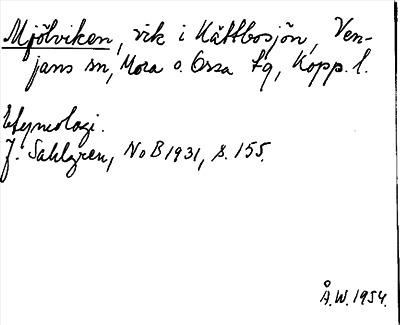 Mjölviken, vik i Kättbosjön, Ven-
jans sn, Mora o. Orsa tg, Kopp. l.
Etymologi.
J. Sahlgren, NoB 1931, s. 155.
Å.W. 1954.